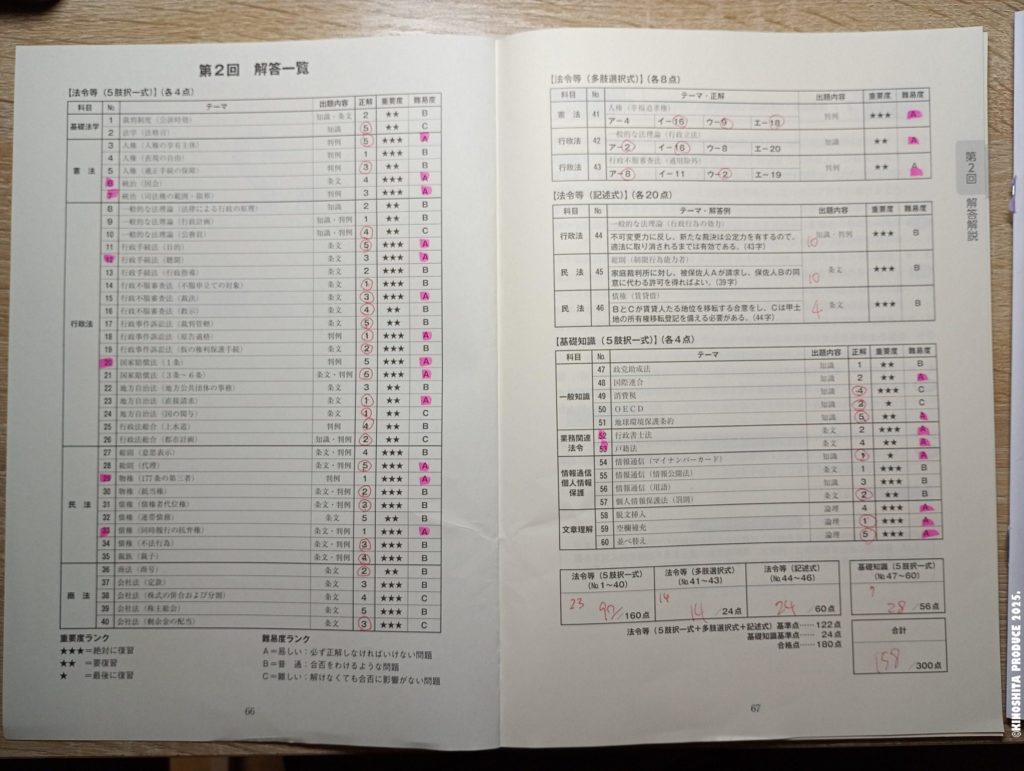 第2回 解答一覧
【法令等（5肢択一式）】（各4点）
科目 № テーマ 出題内容 正解 重要度 難易度
基礎法学 1 裁判制度（公訴時効） 知識・条文 2 ★★ B
2 法学（法格言） 知識 5 ★★ C
憲法 3 人権（人権の享有主体） 判例 5 ★★★ A
4 人権（表現の自由） 判例 1 ★★★ B
5 人権（適正手続の保障） 判例 3 ★★ B
6 統治（国会） 条文 4 ★★★ A
7 統治（司法権の範囲・限界） 判例 3 ★★★ A
行政法 8 一般的な法理論（法律による行政の原理） 知識 2 ★★ B
9 一般的な法理論（行政計画） 知識・判例 1 ★★ B
10 一般的な法理論（公務員） 知識・判例 4 ★★ C
11 行政手続法（目的） 条文 5 ★★★ A
12 行政手続法（聴聞） 条文 3 ★★★ A
13 行政手続法（行政指導） 条文 2 ★★★ B
14 行政不服審査法（不服申立ての対象） 条文 1 ★★★ B
15 行政不服審査法（裁決） 条文 3 ★★★ A
16 行政不服審査法（教示） 条文 4 ★★★ B
17 行政事件訴訟法（裁判管轄） 条文 5 ★★★ B
18 行政事件訴訟法（原告適格） 条文・判例 1 ★★★ A
19 行政事件訴訟法（仮の権利保護手続） 条文 2 ★★★ B
20 国家賠償法（1条） 判例 5 ★★★ A
21 国家賠償法（3条～6条） 条文・判例 5 ★★★ A
22 地方自治法（地方公共団体の事務） 条文 3 ★★ B
23 地方自治法（直接請求） 条文 1 ★★★ A
24 地方自治法（国の関与） 条文 1 ★★ C
25 行政法総合（上水道） 判例 4 ★★ B
26 行政法総合（都市計画） 知識・判例 2 ★★ C
民法 27 総則（意思表示） 条文・判例 4 ★★★ B
28 総則（代理） 条文・判例 5 ★★★ A
29 物権（177条の第三者） 判例 1 ★★★ A
30 物権（抵当権） 条文・判例 2 ★★★ B
31 債権（債権者代位権） 条文・判例 3 ★★★ B
32 債権（連帯債務） 条文 5 ★★ B
33 債権（同時履行の抗弁権） 条文・判例 1 ★★★ A
34 債権（不法行為） 条文・判例 3 ★★★ B
35 親族（親子） 条文・判例 4 ★★★ B
商法 36 商法（商号） 条文 2 ★★ B
37 会社法（定款） 条文 3 ★★★ B
38 会社法（株式の併合および分割） 条文 4 ★★★ B
39 会社法（株主総会） 条文 5 ★★★ B
40 会社法（剰余金の配当） 条文 3 ★★★ C
重要度ランク
★★★＝絶対に復習
★★ ＝要復習
★ ＝最後に復習
難易度ランク
A＝易しい：必ず正解しなければいけない問題
B＝普 通：合否をわけるような問題
C＝難しい：解けなくても合否に影響がない問題
66
【法令等（多肢選択式）】（各8点）
科目 № テーマ・正解 出題内容 重要度 難易度
憲法 41 人権（幸福追求権） 判例 ★★★ A
ア－4 イ－16 ウ－9 エ－18
行政法 42 一般的な法理論（行政立法） 知識 ★★ A
ア－2 イ－16 ウ－8 エ－20
行政法 43 行政不服審査法（適用除外） 判例 ★★ A
ア－8 イ－11 ウ－2 エ－19
【法令等（記述式）】（各20点）
科目 № テーマ・解答例 出題内容 重要度 難易度
行政法 44 一般的な法理論（行政行為の効力） 知識・判例 ★★★ B
不可変更力に反し、新たな裁決は公定力を有するので、
適法に取り消されるまでは有効である。（43字）
10
民法 45 総則（制限行為能力者） 条文 ★★★ B
家庭裁判所に対し、被保佐人Aが請求し、保佐人Bの同
意に代わる許可を得ればよい。（39字）
10
民法 46 債権（賃貸借） 条文 ★★★ B
BとCが賃貸人たる地位を移転する合意をし、Cは甲土
地の所有権移転登記を備える必要がある。（44字）
4
【基礎知識（5肢択一式）】（各4点）
科目 № テーマ 出題内容 正解 重要度 難易度
一般知識 47 政党助成法 知識 1 ★★ B
48 国際連合 知識 2 ★★ A
49 消費税 知識 4 ★★★ C
50 OECD 知識 2 ★ C
51 地球環境保護条約 知識 5 ★★ A
業務関連法令 52 行政書士法 条文 2 ★★★ A
53 戸籍法 条文 4 ★★ A
情報通信個人情報保護 54 情報通信（マイナンバーカード） 知識 1 ★ A
55 情報通信（情報公開法） 条文 1 ★★★ B
56 情報通信（用語） 知識 3 ★★★ B
57 個人情報保護法（罰則） 条文 2 ★★ B
文章理解 58 脱文挿入 論理 4 ★★★ A
59 空欄補充 論理 1 ★★★ A
60 並べ替え 論理 5 ★★★ A
法令等（5肢択一式）（№1～40） 23 92/160点
法令等（多肢選択式）（№41～43） 14 14/24点
法令等（記述式）（№44～46） 24/60点
基礎知識（5肢択一式）（№47～60） 7 28/56点
法令等（5肢択一式＋多肢選択式＋記述式）基準点……122点
基礎知識基準点…… 24点
合格点……180点
合計 158/300点
67
第2回 解答解説
©KINOSHITA PRODUCE 2025.